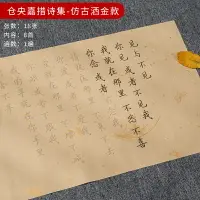 仓央嘉措诗集-仿古洒金款
张数:15张
内容:8首
遍数:1遍
见与不见
你见或者不见我
我就在那里不悲不喜
你念或者